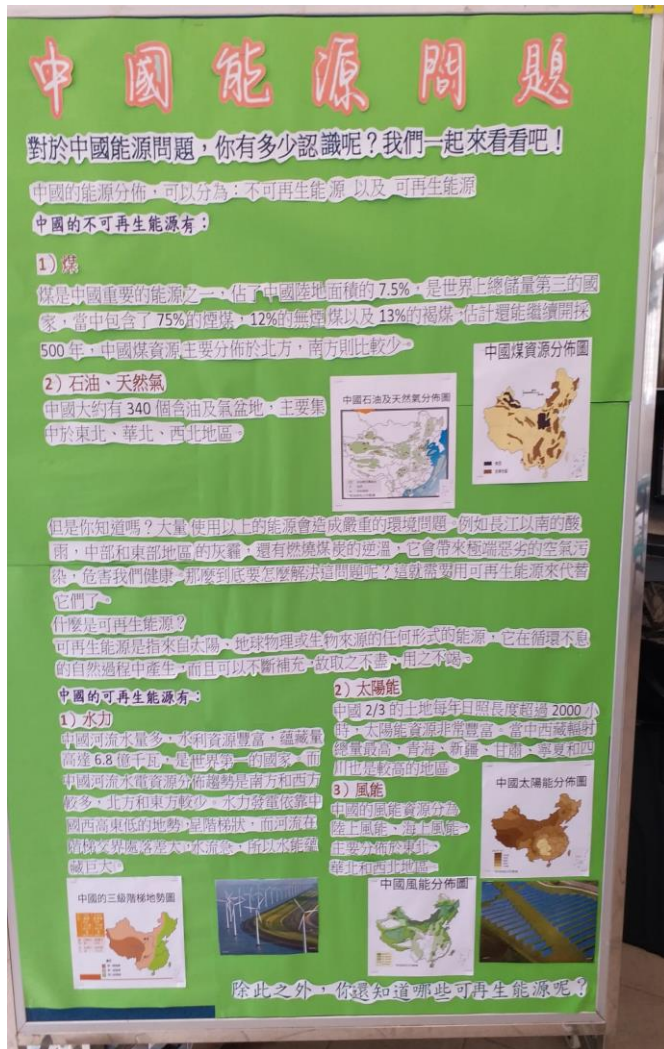 中國能源問題
對於中國能源問題，你有多少認識呢？我們一起來看看吧！
中國的能源分佈，可以分為：不可再生能源 以及 可再生能源
中國的不可再生能源有：
1）煤
煤是中國重要的能源之一，佔了中國陸地面積的 7.5%，是世界上總儲量第三的國
家，當中包含了 75%的煙煤，12%的無煙煤以及 13%的褐煤，估計還能繼續開採
500 年，中國煤資源主要分佈於北方，南方則比較少。
中國煤資源分佈圖
2）石油、天然氣
中國大約有 340 個含油及氣盆地，主要集
中於東北、華北、西北地區。
中國石油及天然氣分佈圖
但是你知道嗎？大量使用以上的能源會造成嚴重的環境問題。例如長江以南的酸
雨，中部和東部地區的灰霾，還有燃燒煤炭的逆溫，它會帶來極端惡劣的空氣污
染，危害我們健康。那麼到底要怎麼解決這問題呢？這就需要用可再生能源來代替
它們了。
什麼是可再生能源？
可再生能源是指來自太陽、地球物理或生物來源的任何形式的能源，它在循環不息
的自然過程中產生，而且可以不斷補充，故取之不盡、用之不竭。
中國的可再生能源有：
1）水力
中國河流水量多，水利資源豐富，蘊藏量
高達 6.8 億千瓦，是世界第一的國家，而
中國河流水電資源分佈趨勢是南方和西方
較多，北方和東方較少。水力發電依靠中
國西高東低的地勢，呈階梯狀，而河流在
階梯交界處落差大，水流急，所以水能蘊
藏巨大。
2）太陽能
中國 2/3 的土地每年日照長度超過 2000 小
時，太陽能資源非常豐富，當中西藏輻射
總量最高，青海、新疆、甘肅、寧夏和四
川也是較高的地區。
3）風能
中國的風能資源分為
陸上風能、海上風能，
主要分佈於東北、
華北和西北地區。
中國太陽能分佈圖
中國的三級階梯地勢圖
中國風能分佈圖
除此之外，你還知道哪些可再生能源呢？